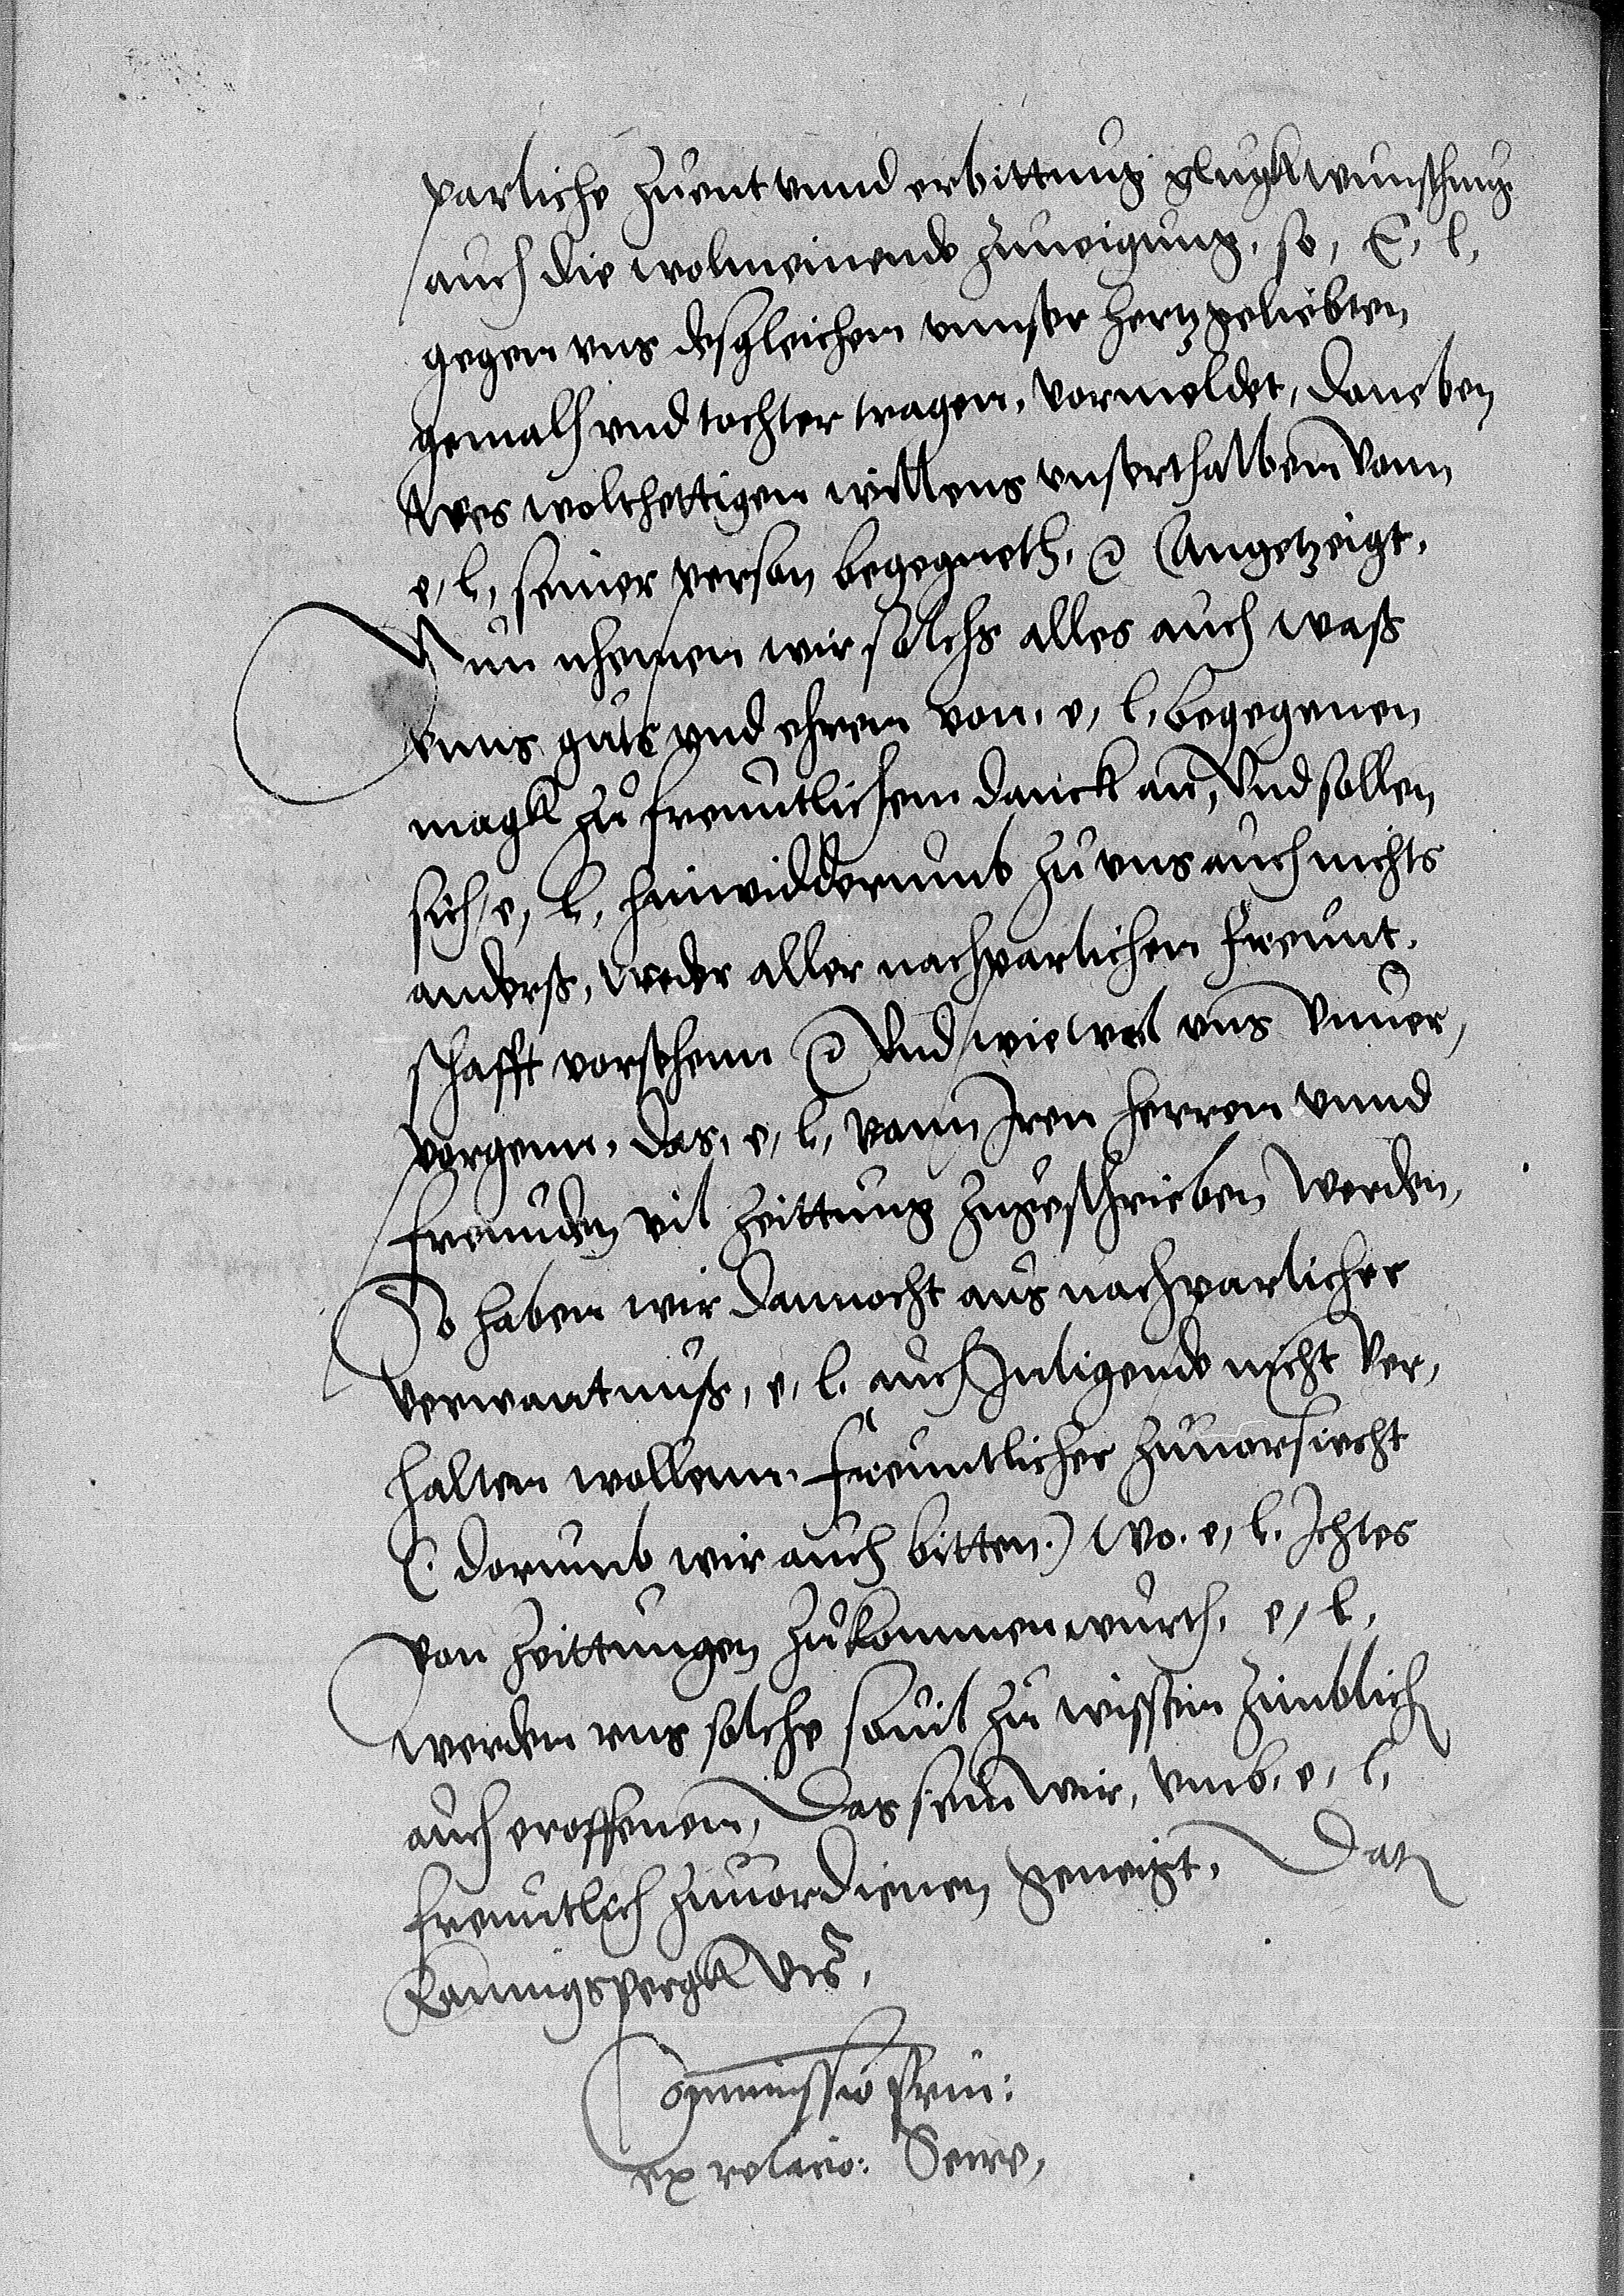 parliche zuent vnnd erbittung gluckwunschung
auch die wolmeinende zuneigung, so, E, l,
gegen vns desgleichen vnnser hertzgeliebten
gemalh vnd tochter tragen, vormeldet, daneben
wes wolthettigen willens vnserthalben vonn
e, l, seiner person begegneth, Angetzeigt,
Nun nhemen wir solchs alles auch waß
vnns guts vnd ehren von, e, l, begegenen
magk zu freuntlichem danck an, Vnd sollen
sich, e, l, hinwidderumb zu vns auch nichts
anderß, weder aller nachparlichen freunt,
schafft vorsehenn Vnd wiewol vns vnuer,
porgenn, das, e, l, vonn Iren herren vnnd
freunden vil zeittung zugeschrieben werden,
So haben wir dannocht aus nachparlicher
verwantnuß, e, l. auch Inligende nicht ver,
halten wollenn, freuntlicher zuuorsicht
(: dorumb wir auch bitten:) Wo. e, l. Ichtes
von zeittungen zukommen wurth, e, l,
werden vns solche souil zu wissen zimblich
auch eroffenen, Das sein wir, vmb, e, l,
freuntlich zuuordienen geneigt, Dat
Konnigspergk Vts,
Commissio prin:
ex relatio: